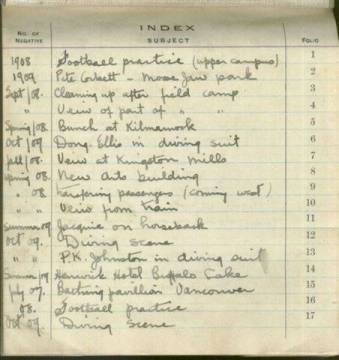 INDEX
NO. OF NEGATIVE SUBJECT FOLIO
1908 Football practice (upper campus) 1
1909 Pete Corbett - Moose Jaw park 2
Sept/08. Cleaning up after field camp 3
" View of part of " " 4
Spring/08. Bunch at Kilmarnock 5
Oct/09 Doug Ellis in diving suit 6
fall/08. View at Kingston Mills 7
Spring 08. New Arts building 8
" 08. passengers (coming west) 9
" " View from train 10
Summer 09 Jacquie on horseback 11
Oct 09. Diving scene 12
" " P.K. Johnston in diving suit 13
Summer 09 Hotel Buffalo Lake 14
July 07. Bathing pavillian Vancouver 15
08. Football practice 16
Oct 09. Diving Scene 17